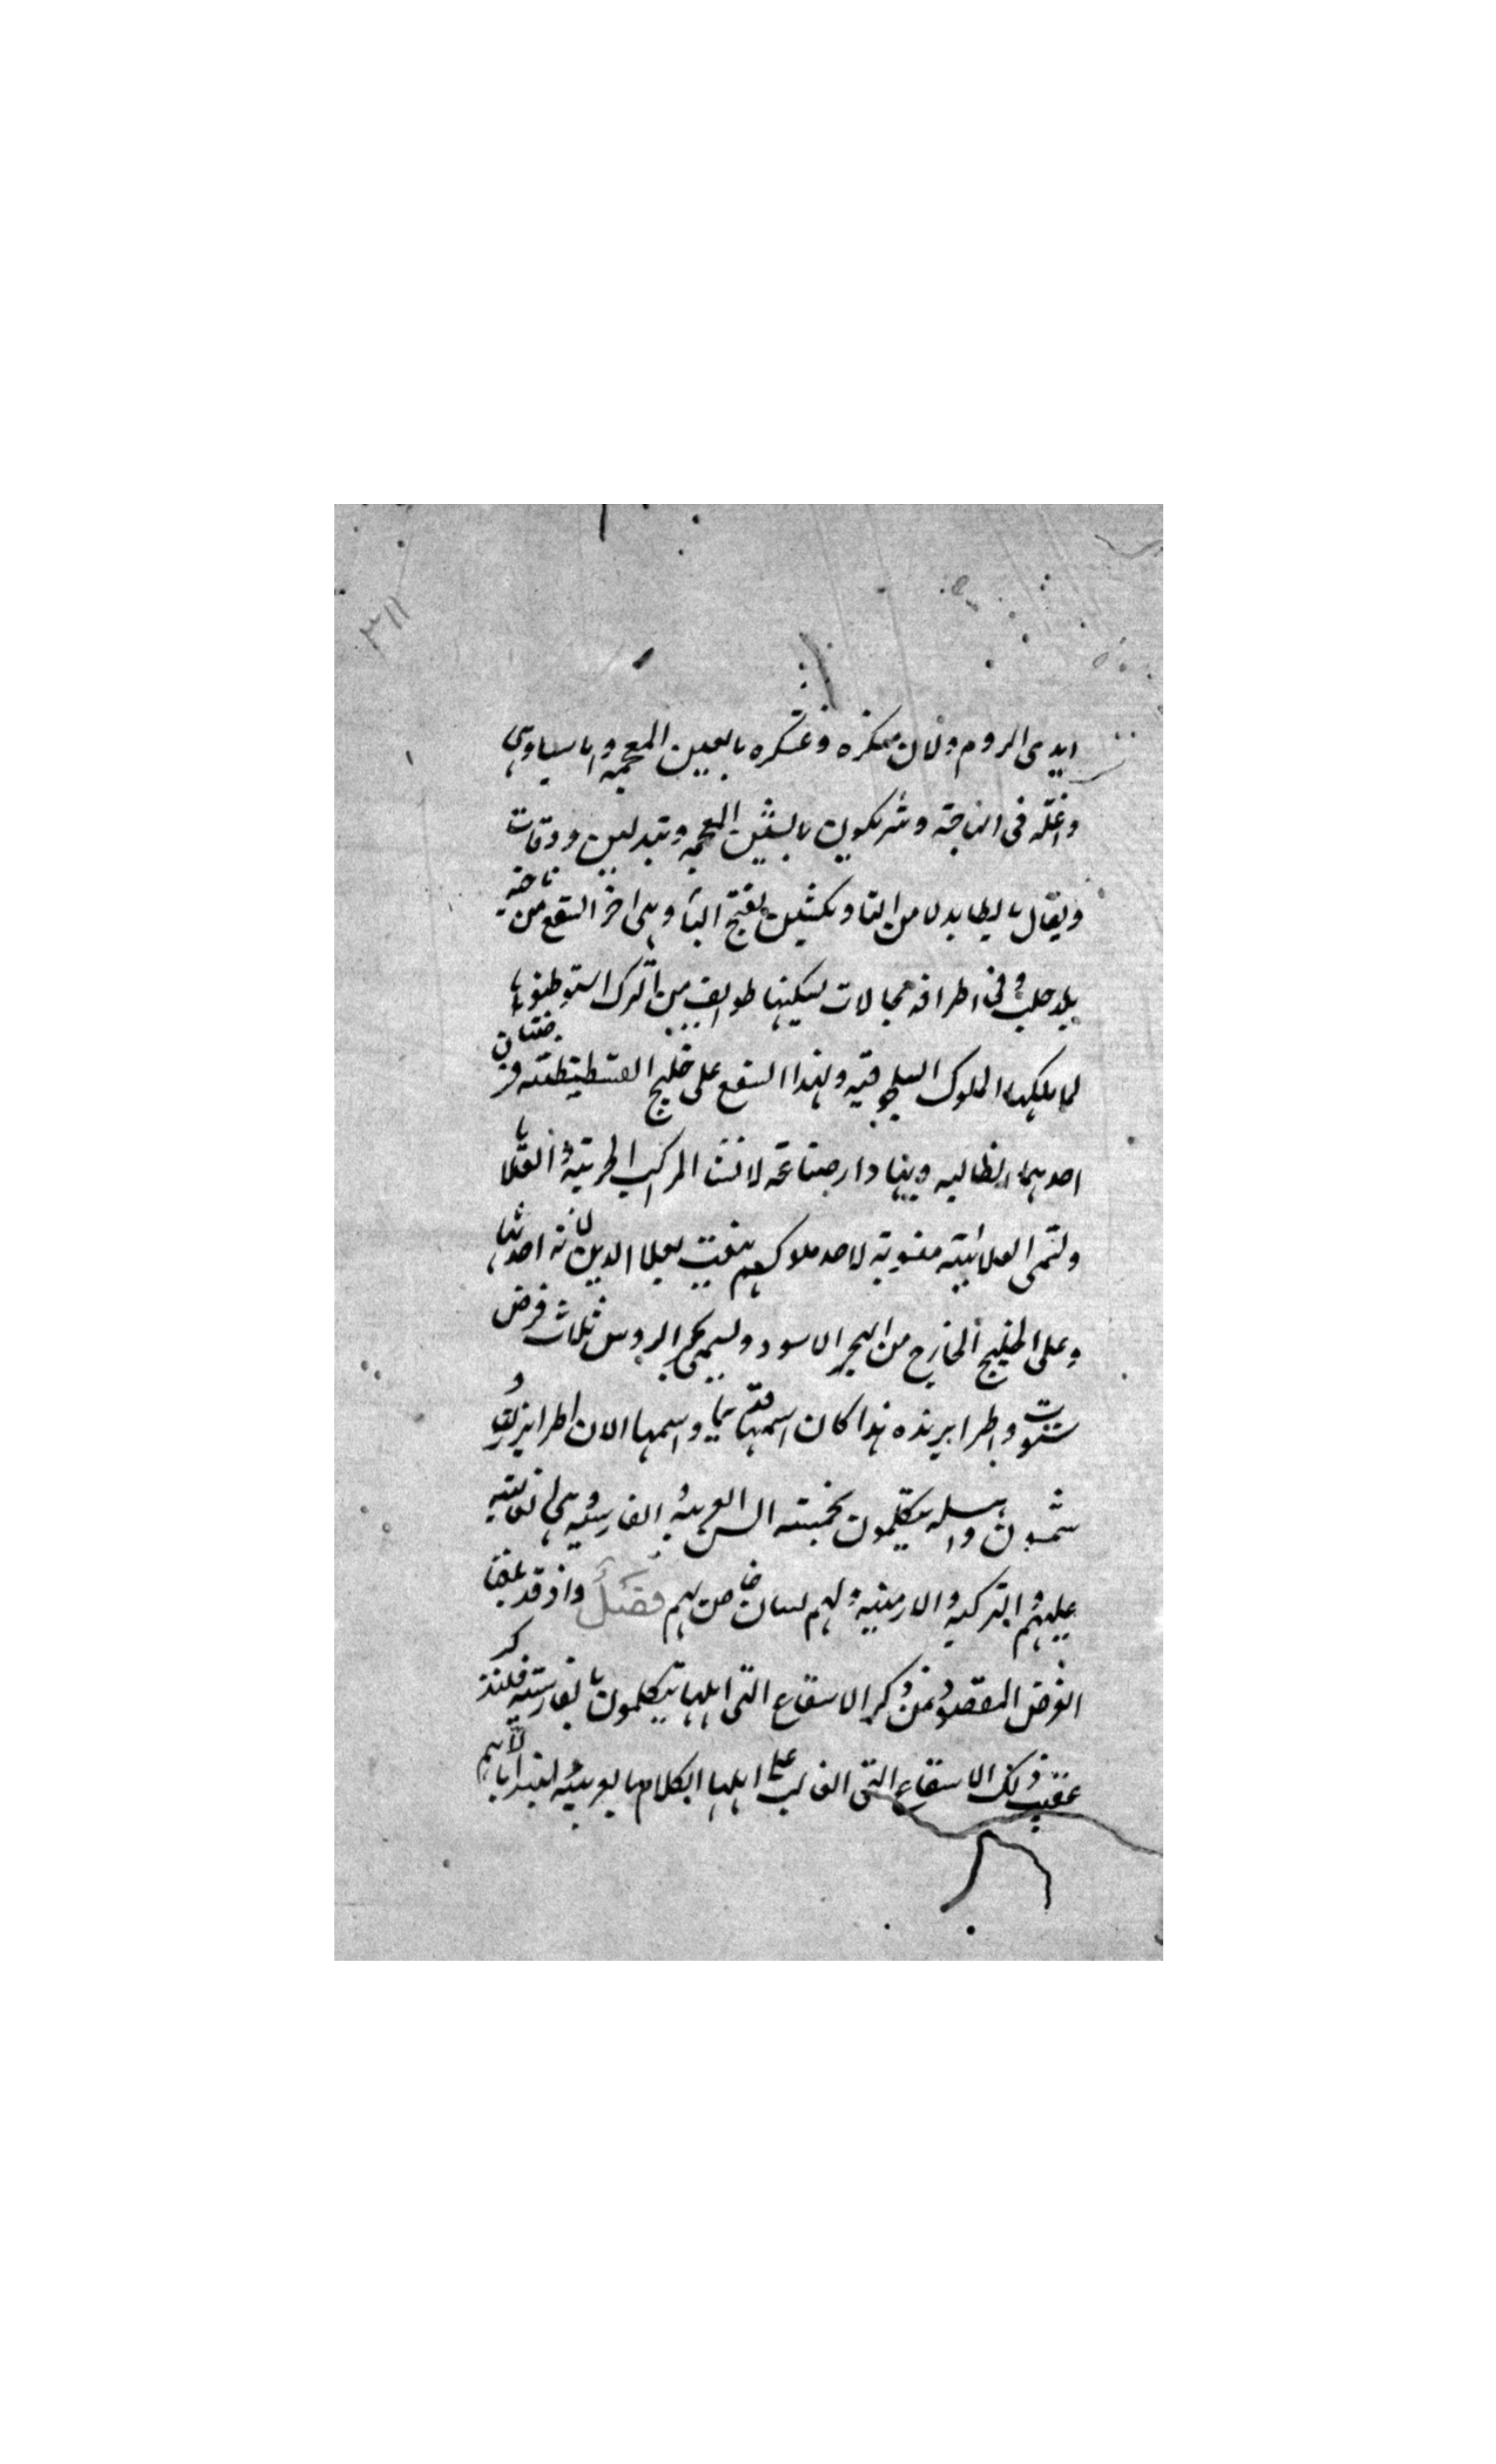 ٣١١
ايدى الروم وكان ممكره وغسكره بالعين المعجمه وباسيلاوسى
واغله فى الناجته وشريكوين بالشين المعجمه وتبدلين ودقات
ويقال بالطا بدلا من التا وبكشين بفتح البا وهى اخر السقع من ناحيه
بلد حلب وفى اطرافه مجالات يسكنها طوايف من الترك استوطنوها
لما ملكها الملوك السلجوقيه ولهذا السقع على خليج القسطنطنيه فرضتان
احدهما انطاليه وبها دار صناعه لانشا المراكب الحربيه والعلايا
وتسمى العلائيه منسوبه لاحد ملوكهم ينعت بعلا الدين لانه احدثها
وعلى الخليج الخارج من البحر الاسود ويسمى بحر الروس ثلاث فرض
سنوت واطرابزنده هذا كان اسمها قديما واسمها الان اطرابزون و
شمسون واهله يتكلمون بخمسه السن العربيه والفارسيه وهى الغالبه
عليهم والتركيه والارمنيه ولهم لسان خاص بهم فصل واذ قد بلغنا
الغرض المقصود من ذكر الاسقاع التى اهلها يتكلمون بالفارسيه فلنذكر
عقيب ذلك الاسقاع التى الغالب على اهلها الكلام بالعربيه لغه ابائهم